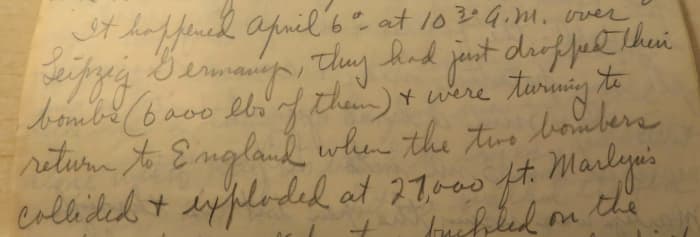 It happened April 6º - at 10³⁰ A.M. over
Leipzig Germany, they had just dropped their
bombs (6000 lbs of them) & were turning to
return to England when the two bombers
collided & exploded at 27,000 ft. Marlyn's
buckled on the